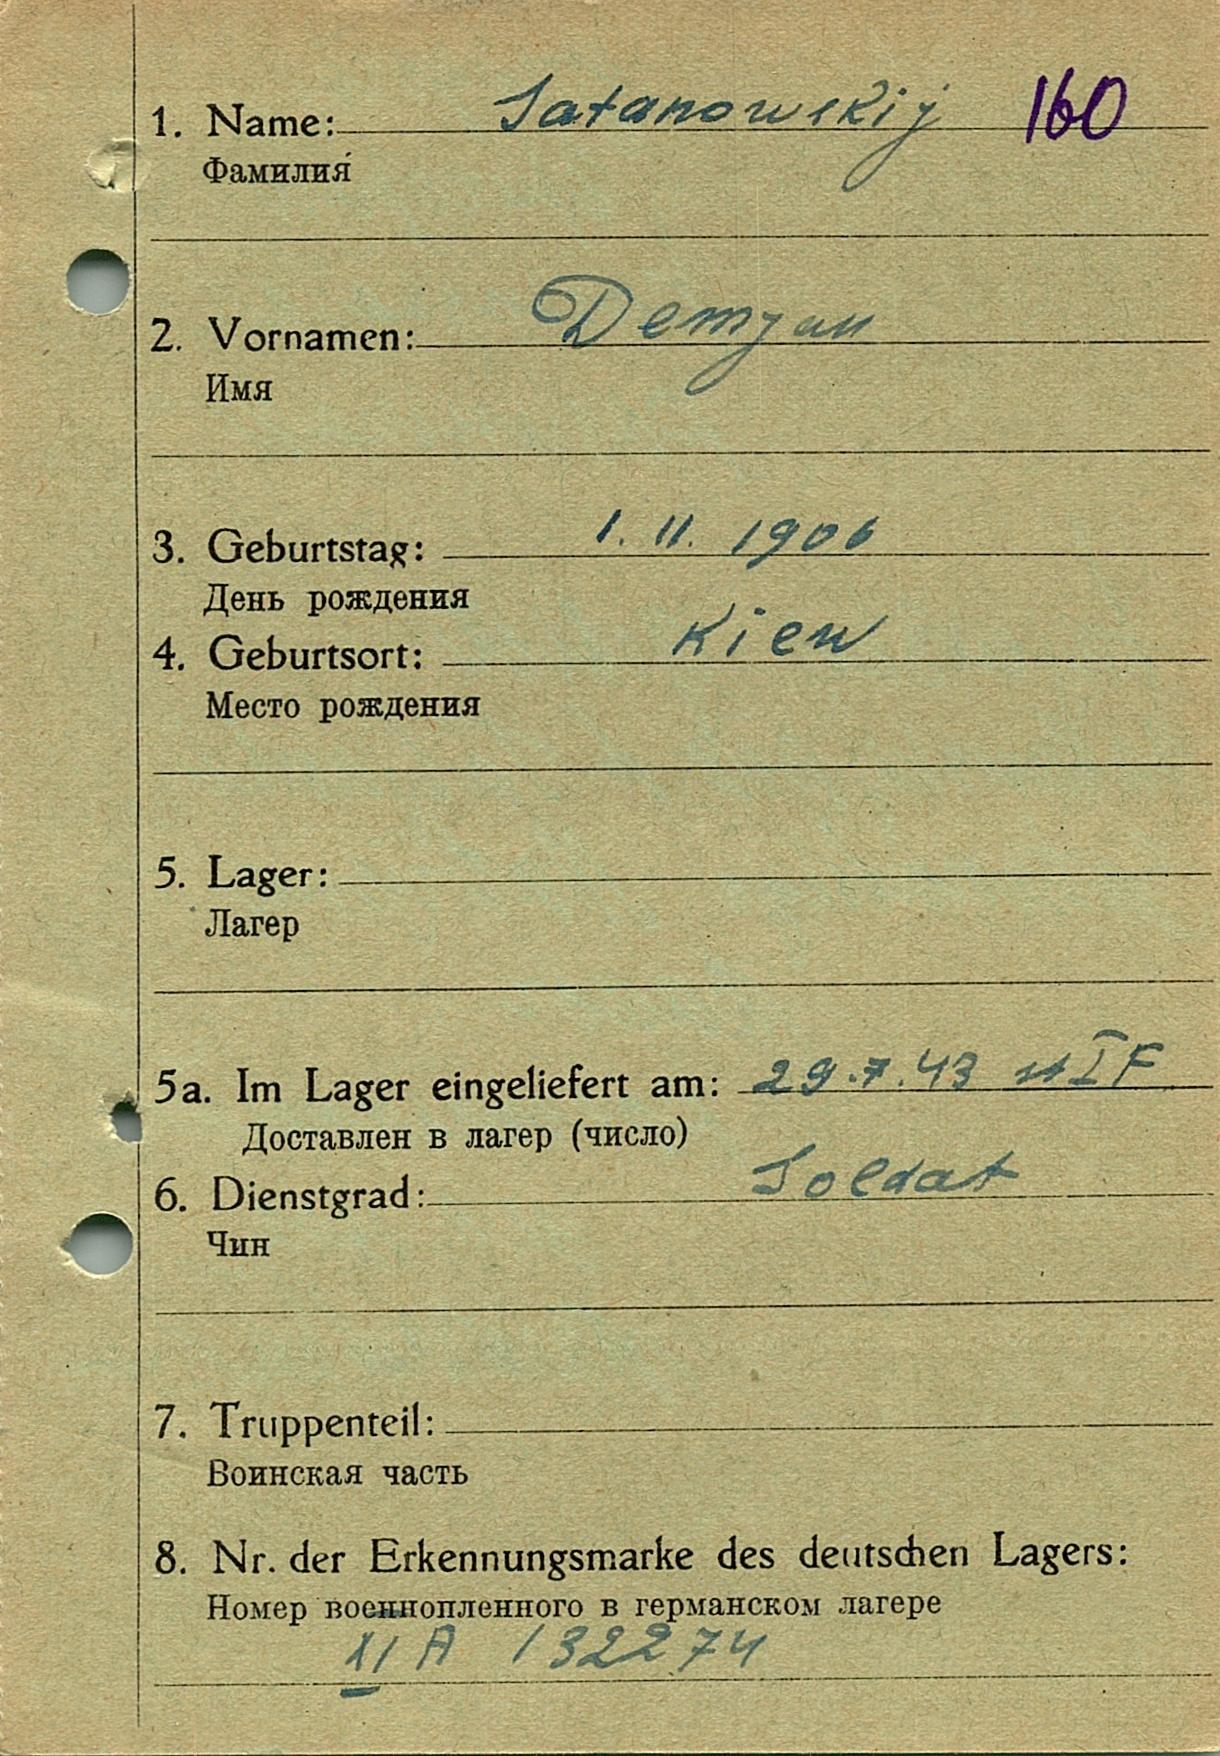 1. Name: Satanowskij 160
Фамилия
2. Vornamen: Demjan
Имя
3. Geburtstag: 1. 11. 1906
День рождения
4. Geburtsort: Kiew
Место рождения
5. Lager:
Лагер
5a. Im Lager eingeliefert am: 29.7.43 IF
Доставлен в лагер (число)
6. Dienstgrad: Soldat
Чин
7. Truppenteil:
Воинская часть
8. Nr. der Erkennungsmarke des deutschen Lagers:
Номер военнопленного в германском лагере
XI A 132274